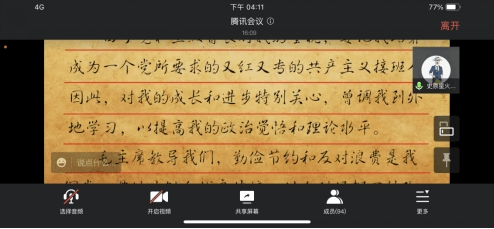 4G
下午 04:11
77%
腾讯会议
16:09
离开
成为一个党所要求的又红又专的共产主义接班
史原星火...
因此，对我的成长和进步特别关心，曾调我到外
地学习，以提高我的政治觉悟和理论水平。
毛主席教导我们，勤俭节约和反对浪费是我
说点什么...
选择音频
开启视频
共享屏幕
成员(94)
更多